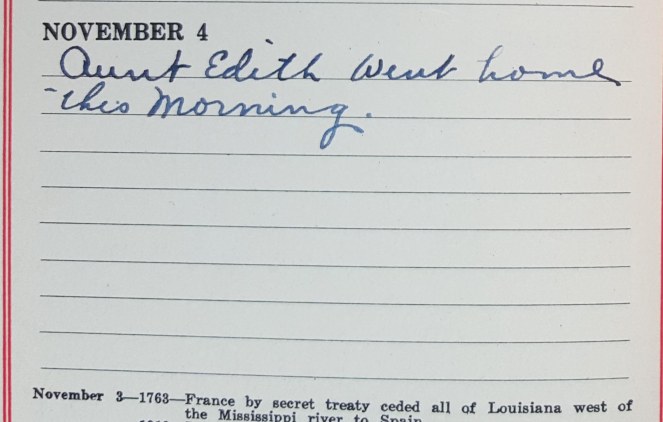 NOVEMBER 4
Aunt Edith Went home
this Morning.
November 3—1763—France by secret treaty ceded all of Louisiana west of
the Mississippi river to Spain.